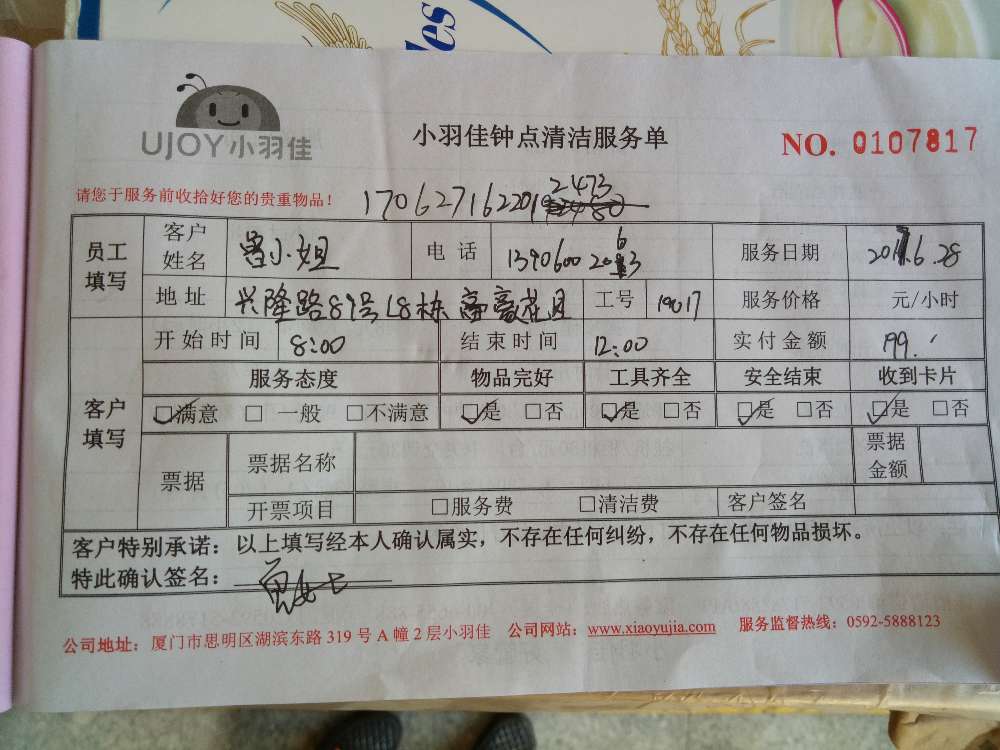 des
UJOY小羽佳
小羽佳钟点清洁服务单
NO. 0107817
请您于服务前收拾好您的贵重物品！
170627162201 2473
员工填写 客户姓名 曾小姐 电话 服务日期
地址 兴隆路89号L8栋 工号 19017 服务价格 元/小时
客户填写 开始时间 8:00 结束时间 12:00 实付金额 199.
服务态度 物品完好 工具齐全 安全结束 收到卡片
☑满意 □ 一般 □不满意 ☑是 □否 ☑是 □否 ☑是 □否 ☑是 □否
票据 票据名称 票据金额
开票项目 □服务费 □清洁费 客户签名
客户特别承诺：以上填写经本人确认属实，不存在任何纠纷，不存在任何物品损坏。
特此确认签名：
公司地址：厦门市思明区湖滨东路 319 号 A 幢 2 层小羽佳 公司网站：www.xiaoyujia.com 服务监督热线：0592-5888123